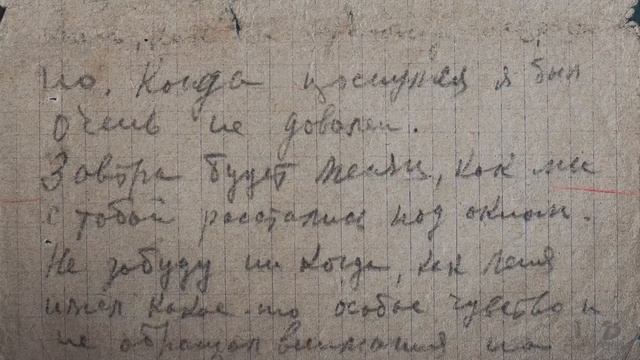 но. Когда проснулся я был
очень не доволен.
Завтра будет месяц, как мы
с тобой расстались под окном.
Не забуду ни когда, как меня
имел какое-то особое чувство и
не обращал внимания на